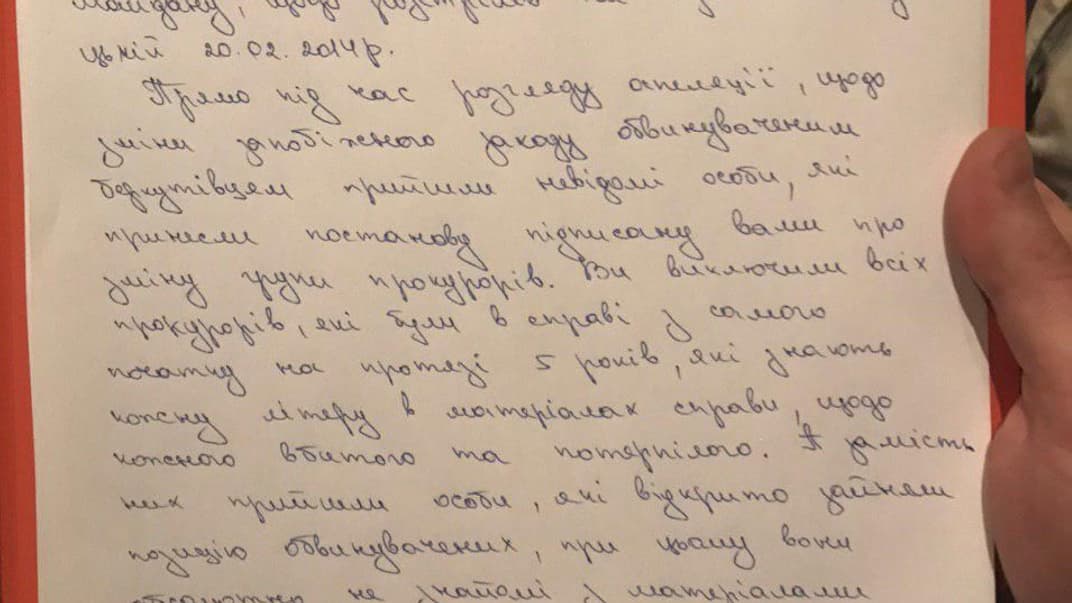 Майдану, щодо розстрілів на
цькій 20.02.2014р.
Прямо під час розгляду апеляції, щодо
зміни запобіжного заходу обвинуваченим
беркутівцям прийшли невідомі особи, які
принесли постанову підписану вами про
зміну групи прокурорів. Ви виключили всіх
прокурорів, які були в справі з самого
початку на протязі 5 років, які знають
кожну літеру в матеріалах справи, щодо
кожного вбитого та потерпілого. А замість
них прийшли особи, які відкрито зайняли
позицію обвинувачених, при цьому вони
абсолютно не знайомі з матеріалами